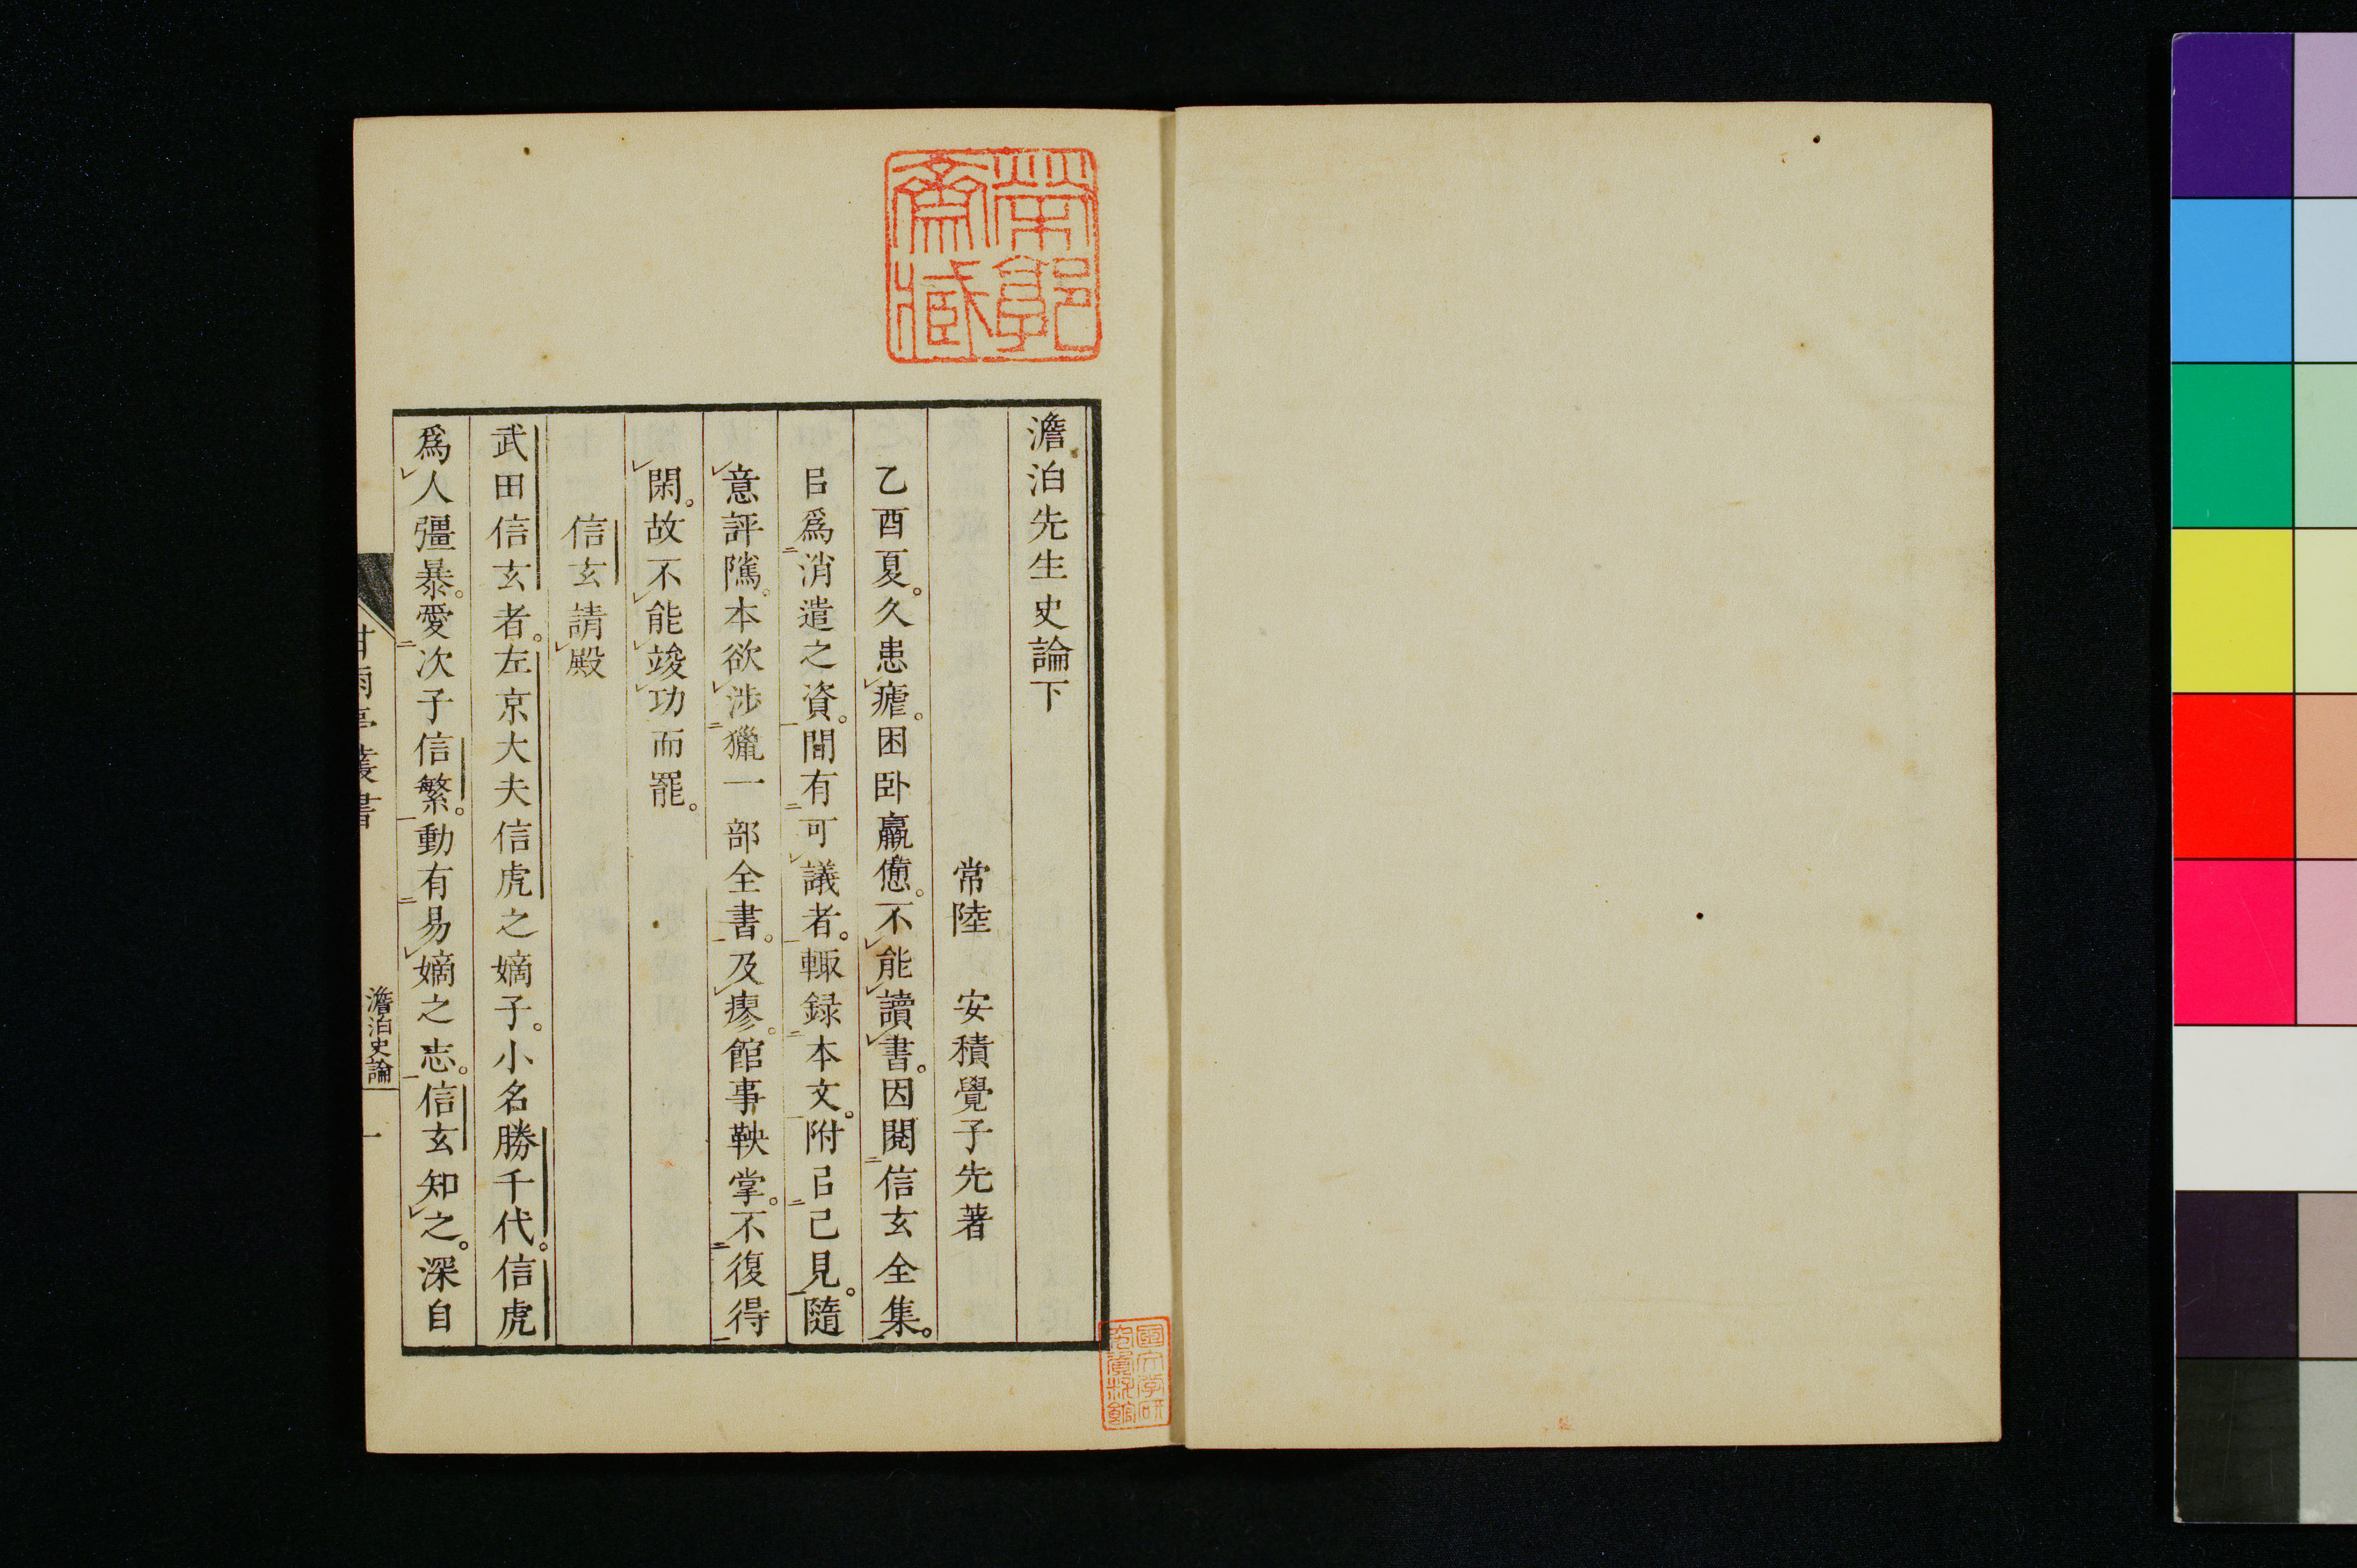 澹泊先生史論下
常陸 安積覺子先著
乙酉夏。久患瘧。困卧羸憊。不能讀書。因閱信玄全集。
㠯爲消遣之資。間有可議者。輙録本文。附㠯己見。隨
意評隲。本欲涉獵一部全書。及瘳。館事鞅掌。不復得
閑。故不能竣功而罷。
信玄請殿
武田信玄者。左京大夫信虎之嫡子。小名勝千代。信虎
爲人彊暴。愛次子信繁。動有易嫡之志。信玄知之。深自
甘雨亭叢書
澹泊史論
一
帶郭齋藏
國文学研究資料館